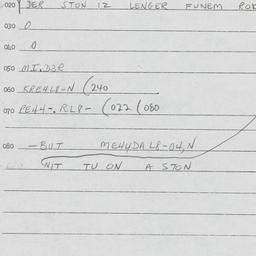 020 DER STON IZ LENGER FUNEM ROK
030 0
040 0
050 MI.D3R
060 KREHLP-N (240
070 PEHH-.RLP- (022 (080
080 -BUT MEHYDALP-OH,N
NIT TU ON A STON